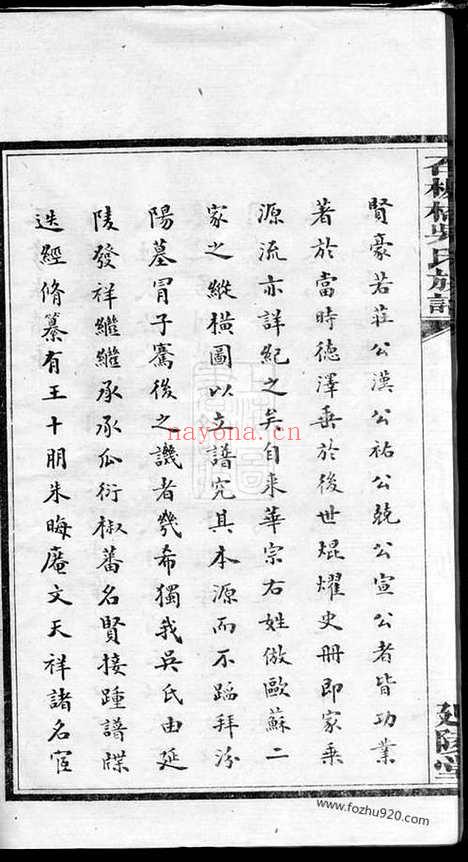 賢豪若莊公漢公祐公兢公宣公者皆功業
著於當時德澤垂於後世焜燿史冊即家乘
源流亦詳紀之矣自來華宗右姓倣歐蘇二
家之縱橫圖以立譜究其本源而不蹈拜汾
陽墓冒子騫後之譏者幾希獨我吳氏由延
陵發祥繼繼承承瓜衍椒蕃名賢接踵譜牒
迭經脩纂有王十朋朱晦庵文天祥諸名宦
吳氏族譜
延陵堂
nayona.cn
www.fozhu920.com